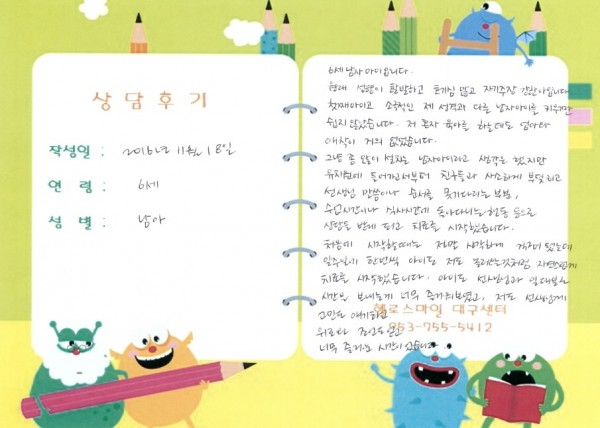 상담후기
작성일 : 2016년 11월 18일
연 령 : 6세
성 별 : 남아
6세 남자 아이입니다.
현재 성향이 활발하고 호기심 많고 자기주장 강한아입니다
첫째아이고 소심인 제 성격과 다른 남자아이를 키우기란
쉽지 않았습니다. 저 혼자 육아를 하는데도 엄마와
애착이 거의 없었습니다.
그냥 좀 많이 설치는 남자아이라고 생각은 했지만
유치원에 들어가고서부터 친구들과 사소하게 부딪히고
선생님 말씀이나 순서를 못기다리는 부분,
수업시간이나 식사시간에 돌아다니는 행동 등으로
상담을 받게 되고 치료를 시작했습니다.
처음에 시작할때는 정말 심각하게 걱정이 됐는데
일주일에 한번씩 아이도 저도 놀러오는것처럼 자연스럽게
치료를 시작했습니다. 아이도 선생님과 일대일로
시간을 보내는게 너무 즐거워보였고, 저도 선생님께
고민도 얘기하고
위로와 조언도 얻고
너무 즐거운 시간이었습니다
헬로스마일 대구센터
053-755-5412